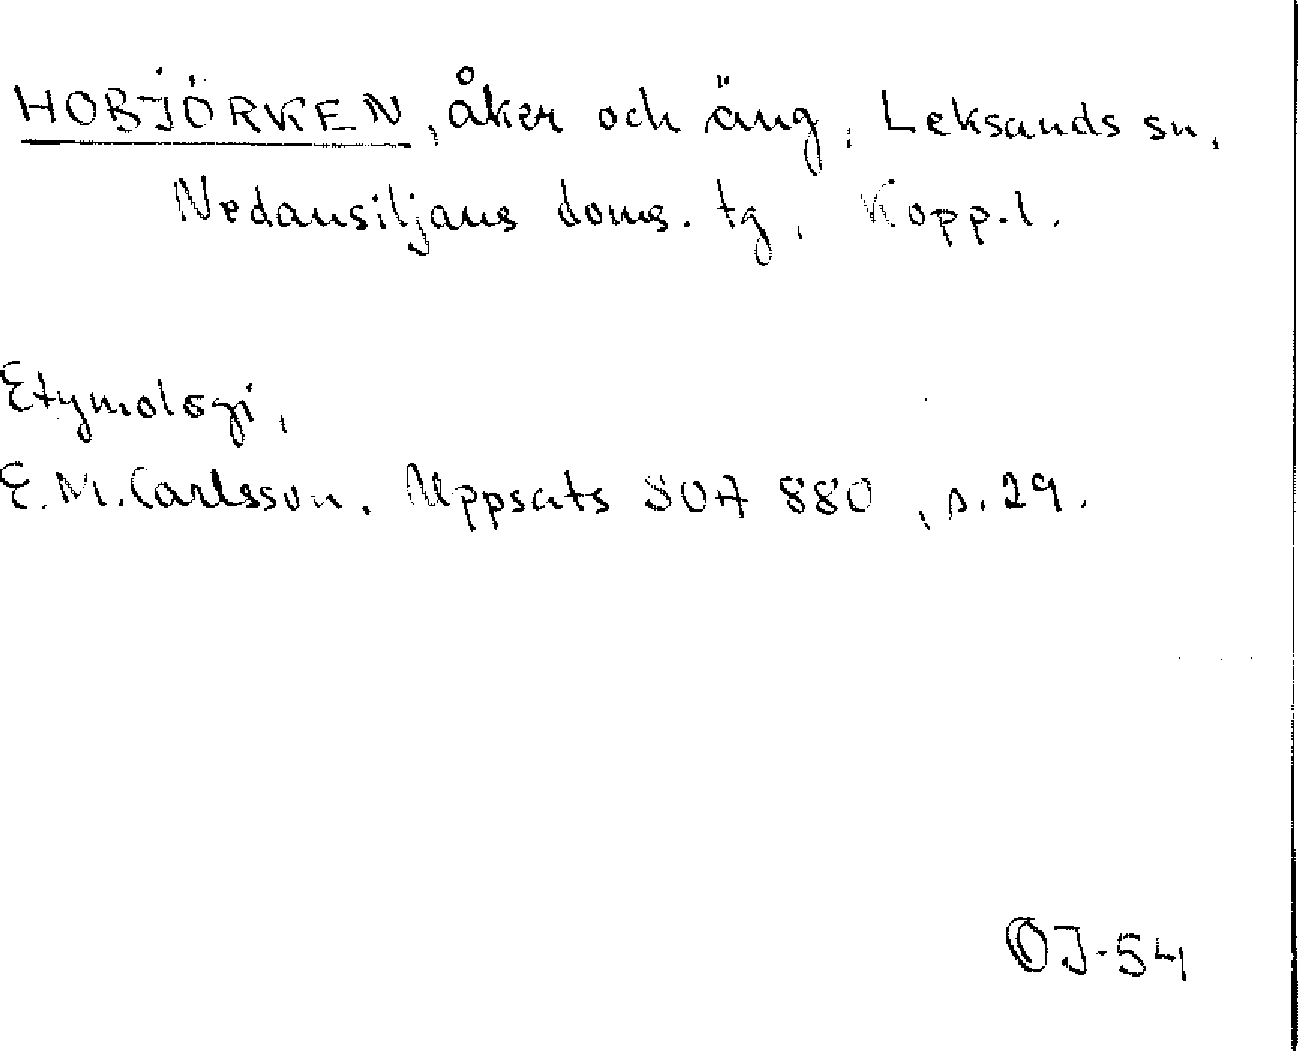 HOBJÖRKEN, åker och äng, Leksands sn,
Nedansiljans doms. tg, Kopp.l.
Etymologi,
E.M. Carlsson. Uppsats SOA 880, s. 29.
OJ-54